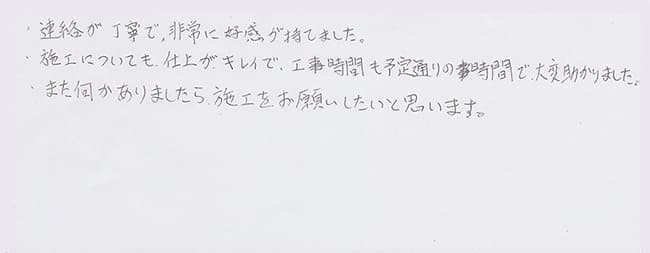 ・連絡が丁寧で、非常に好感が持てました。
・施工についても、仕上がキレイで、工事時間も予定通りの時間で、大変助かりました。
・また何かありましたら、施工をお願いしたいと思います。